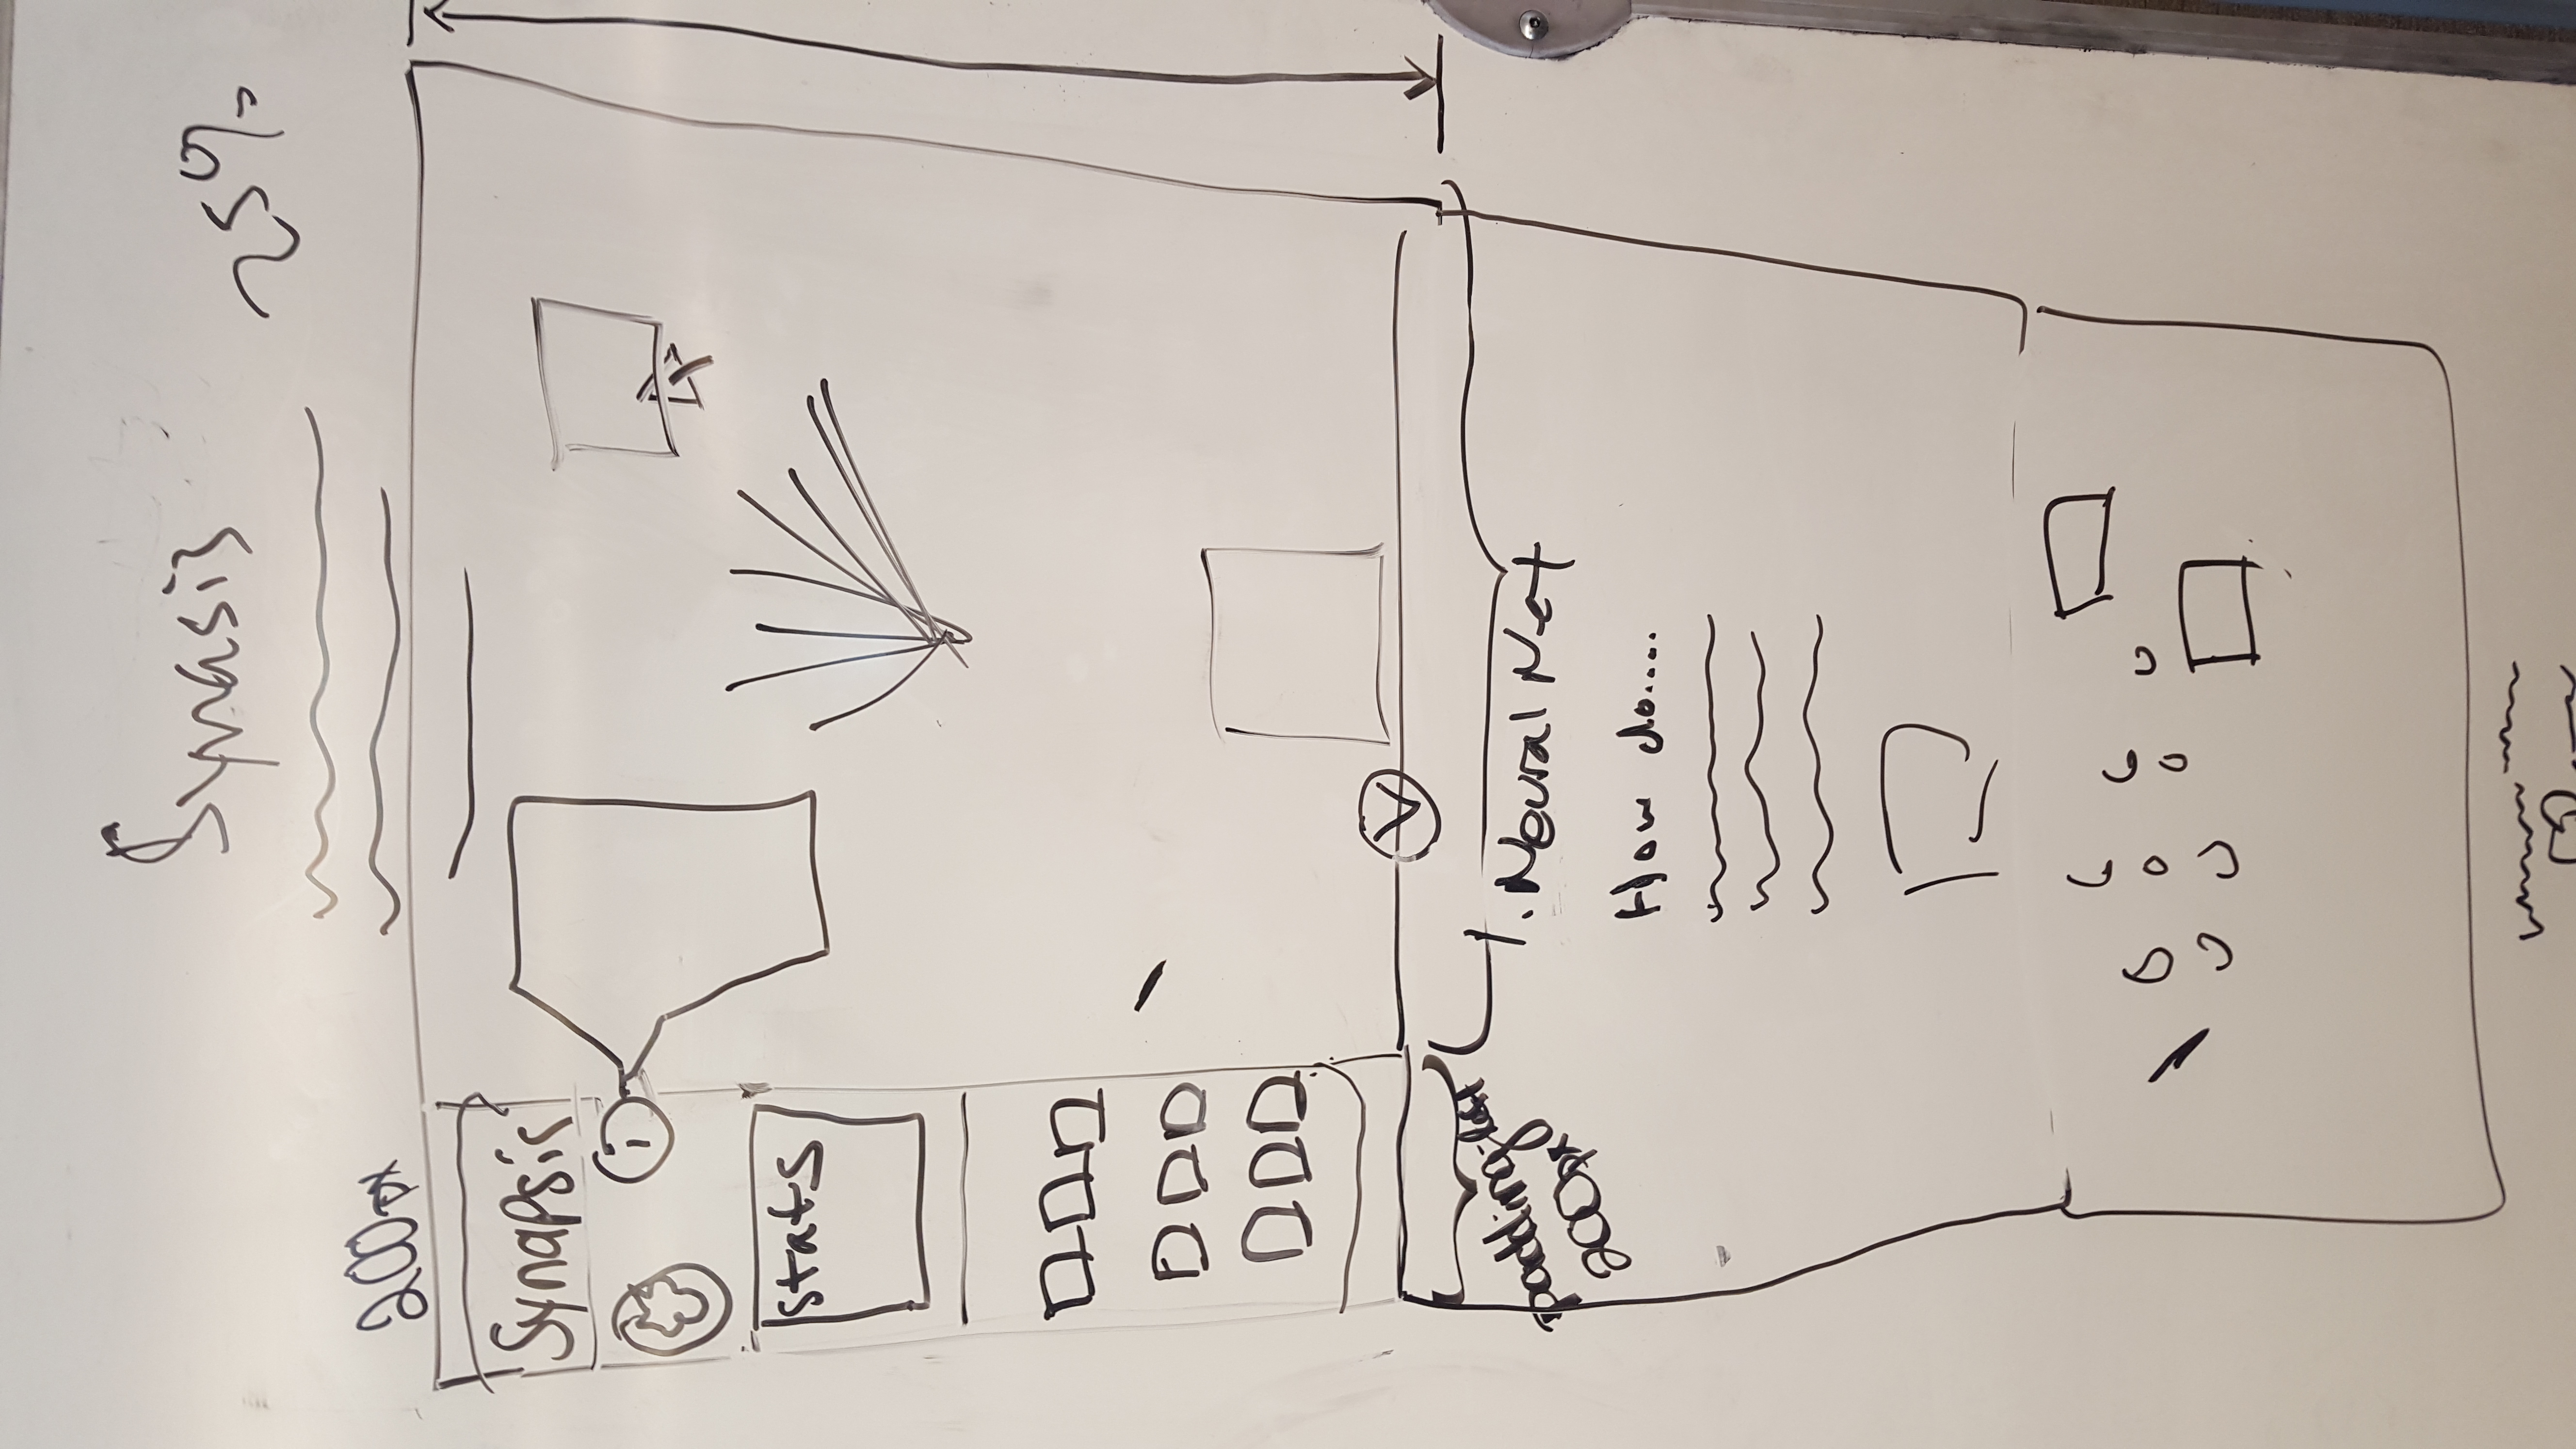 Synasis
25%
200px
Synapsis
i
stats
padding-left
200px
1. Neural Net
How do....